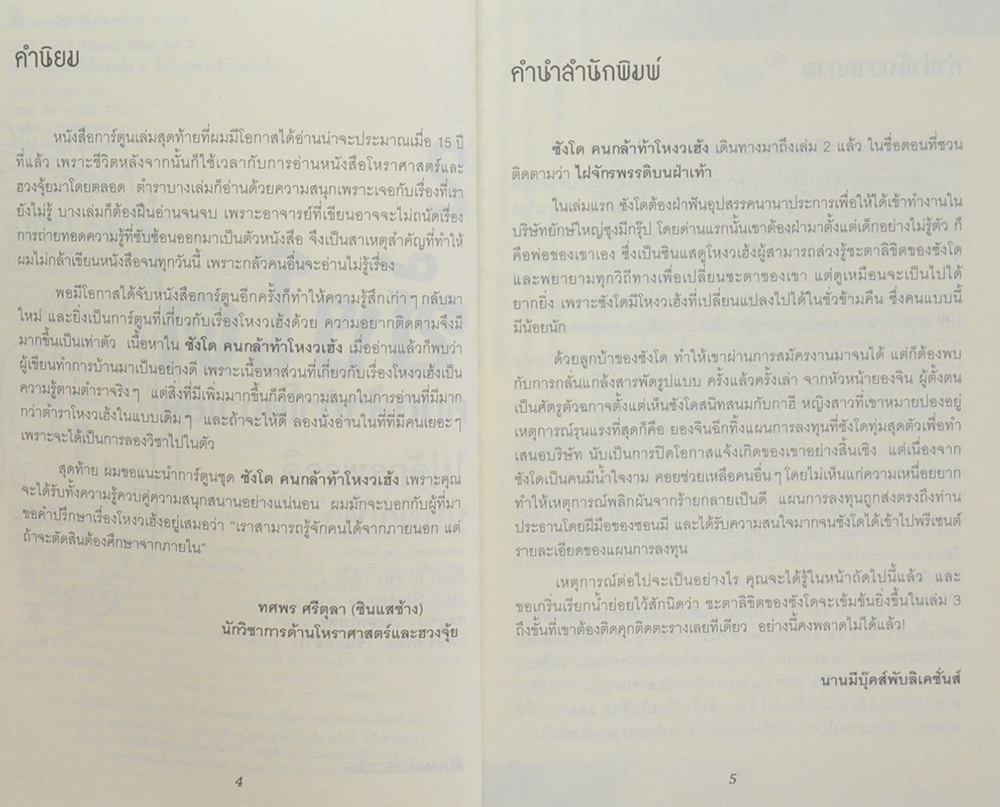 คำนิยม
หนังสือการ์ตูนเล่มสุดท้ายที่ผมมีโอกาสได้อ่านน่าจะประมาณเมื่อ 15 ปี
ที่แล้ว เพราะชีวิตหลังจากนั้นก็ใช้เวลากับการอ่านหนังสือโหราศาสตร์และ
ฮวงจุ้ยมาโดยตลอด ตำราบางเล่มก็อ่านด้วยความสนุกเพราะเจอกับเรื่องที่เรา
ยังไม่รู้ บางเล่มก็ต้องฝืนอ่านจนจบ เพราะอาจารย์ที่เขียนอาจจะไม่ถนัดเรื่อง
การถ่ายทอดความรู้ที่ซับซ้อนออกมาเป็นตัวหนังสือ จึงเป็นสาเหตุสำคัญที่ทำให้
ผมไม่กล้าเขียนหนังสือจนทุกวันนี้ เพราะกลัวคนอื่นจะอ่านไม่รู้เรื่อง
พอมีโอกาสได้จับหนังสือการ์ตูนอีกครั้งก็ทำให้ความรู้สึกเก่าๆ กลับมา
ใหม่ และยิ่งเป็นการ์ตูนที่เกี่ยวกับเรื่องโหงวเฮ้งด้วย ความอยากติดตามจึงมี
มากขึ้นเป็นเท่าตัว เนื้อหาใน ซังโด คนกล้าท้าโหงวเฮ้ง เมื่ออ่านแล้วก็พบว่า
ผู้เขียนทำการบ้านมาเป็นอย่างดี เพราะเนื้อหาส่วนที่เกี่ยวกับเรื่องโหงวเฮ้งเป็น
ความรู้ตามตำราจริงๆ แต่สิ่งที่มีเพิ่มมากขึ้นก็คือความสนุกในการอ่านที่มีมาก
กว่าตำราโหงวเฮ้งในแบบเดิมๆ และถ้าจะให้ดี ลองนั่งอ่านในที่ที่มีคนเยอะๆ
เพราะจะได้เป็นการลองวิชาไปในตัว
สุดท้าย ผมขอแนะนำการ์ตูนชุด ซังโด คนกล้าท้าโหงวเฮ้ง เพราะคุณ
จะได้รับทั้งความรู้ควบคู่ความสนุกสนานอย่างแน่นอน ผมมักจะบอกกับผู้ที่มา
ขอคำปรึกษาเรื่องโหงวเฮ้งอยู่เสมอว่า "เราสามารถรู้จักคนได้จากภายนอก แต่
ถ้าจะตัดสินต้องศึกษาจากภายใน"
ทศพร ศรีตุลา (ซินแสช้าง)
นักวิชาการด้านโหราศาสตร์และฮวงจุ้ย
4
คำนำสำนักพิมพ์
ซังโด คนกล้าท้าโหงวเฮ้ง เดินทางมาถึงเล่ม 2 แล้ว ในชื่อตอนที่ชวน
ติดตามว่า ไฝจักรพรรดิบนฝ่าเท้า
ในเล่มแรก ซังโดต้องฝ่าฟันอุปสรรคนานาประการเพื่อให้ได้เข้าทำงานใน
บริษัทยักษ์ใหญ่ซุงมีกรุ๊ป โดยด่านแรกนั้นเขาต้องฝ่ามาตั้งแต่เด็กอย่างไม่รู้ตัว ก็
คือพ่อของเขาเอง ซึ่งเป็นซินแสดูโหงวเฮ้งผู้สามารถล่วงรู้ชะตาลิขิตของซังโด
และพยายามทุกวิถีทางเพื่อเปลี่ยนชะตาของเขา แต่ดูเหมือนจะเป็นไปได้
ยากยิ่ง เพราะซังโดมีโหงวเฮ้งที่เปลี่ยนแปลงไปได้ในชั่วข้ามคืน ซึ่งคนแบบนี้
มีน้อยนัก
ด้วยลูกบ้าของซังโด ทำให้เขาผ่านการสมัครงานมาจนได้ แต่ก็ต้องพบ
กับการกลั่นแกล้งสารพัดรูปแบบ ครั้งแล้วครั้งเล่า จากหัวหน้ายองจิน ผู้ตั้งตน
เป็นศัตรูตัวฉกาจตั้งแต่เห็นซังโดสนิทสนมกับกาฮี หญิงสาวที่เขาหมายปองอยู่
เหตุการณ์รุนแรงที่สุดก็คือ ยองจินฉีกทิ้งแผนการลงทุนที่ซังโดทุ่มสุดตัวเพื่อทำ
เสนอบริษัท นับเป็นการปิดโอกาสแจ้งเกิดของเขาอย่างสิ้นเชิง แต่เนื่องจาก
ซังโดเป็นคนมีน้ำใจงาม คอยช่วยเหลือคนอื่นๆ โดยไม่เห็นแก่ความเหนื่อยยาก
ทำให้เหตุการณ์พลิกผันจากร้ายกลายเป็นดี แผนการลงทุนถูกส่งตรงถึงท่าน
ประธานโดยฝีมือของซอนมี และได้รับความสนใจมากจนซังโดได้เข้าไปพรีเซนต์
รายละเอียดของแผนการลงทุน
เหตุการณ์ต่อไปจะเป็นอย่างไร คุณจะได้รู้ในหน้าถัดไปนี้แล้ว และ
ขอเกริ่นเรียกน้ำย่อยไว้สักนิดว่า ชะตาลิขิตของซังโดจะเข้มข้นยิ่งขึ้นในเล่ม 3
ถึงขั้นที่เขาต้องติดคุกติดตะรางเลยทีเดียว อย่างนี้คงพลาดไม่ได้แล้ว!
นานมีบุ๊คส์พับลิเคชั่นส์
5